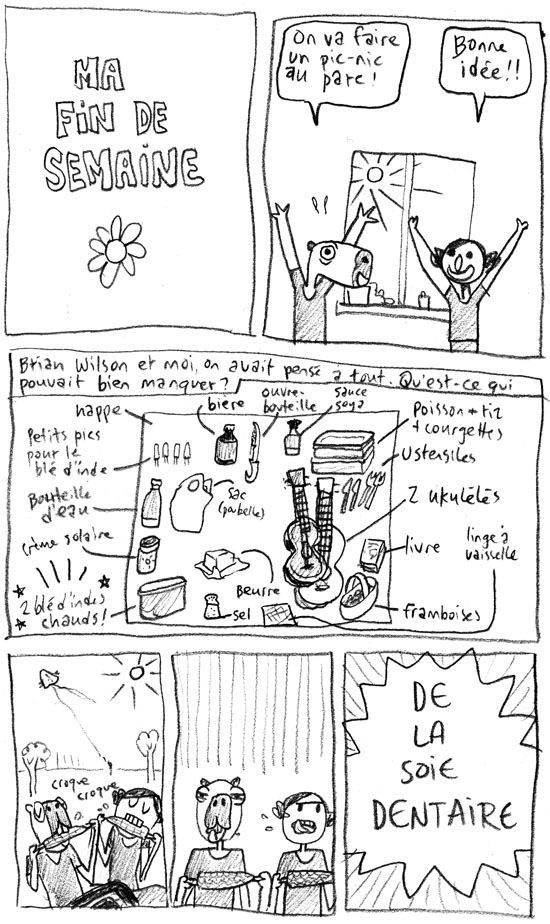 MA
FIN DE
SEMAINE
On va faire
un pic-nic
au parc!
Bonne
idée!!
Brian Wilson et moi, on avait pensé à tout. Qu'est-ce qui
pouvait bien manquer?
nappe
bière
ouvre-
bouteille
sauce
soya
Poisson + riz
+ courgettes
Petits pics
pour le
blé d'inde
ustensiles
Sac
(poubelle)
Bouteille
d'eau
2 ukulélés
crème solaire
livre
linge à
vaisselle
Beurre
2 blé d'indes
chauds!
sel
framboises
croque
croque
DE
LA
SOIE
DENTAIRE